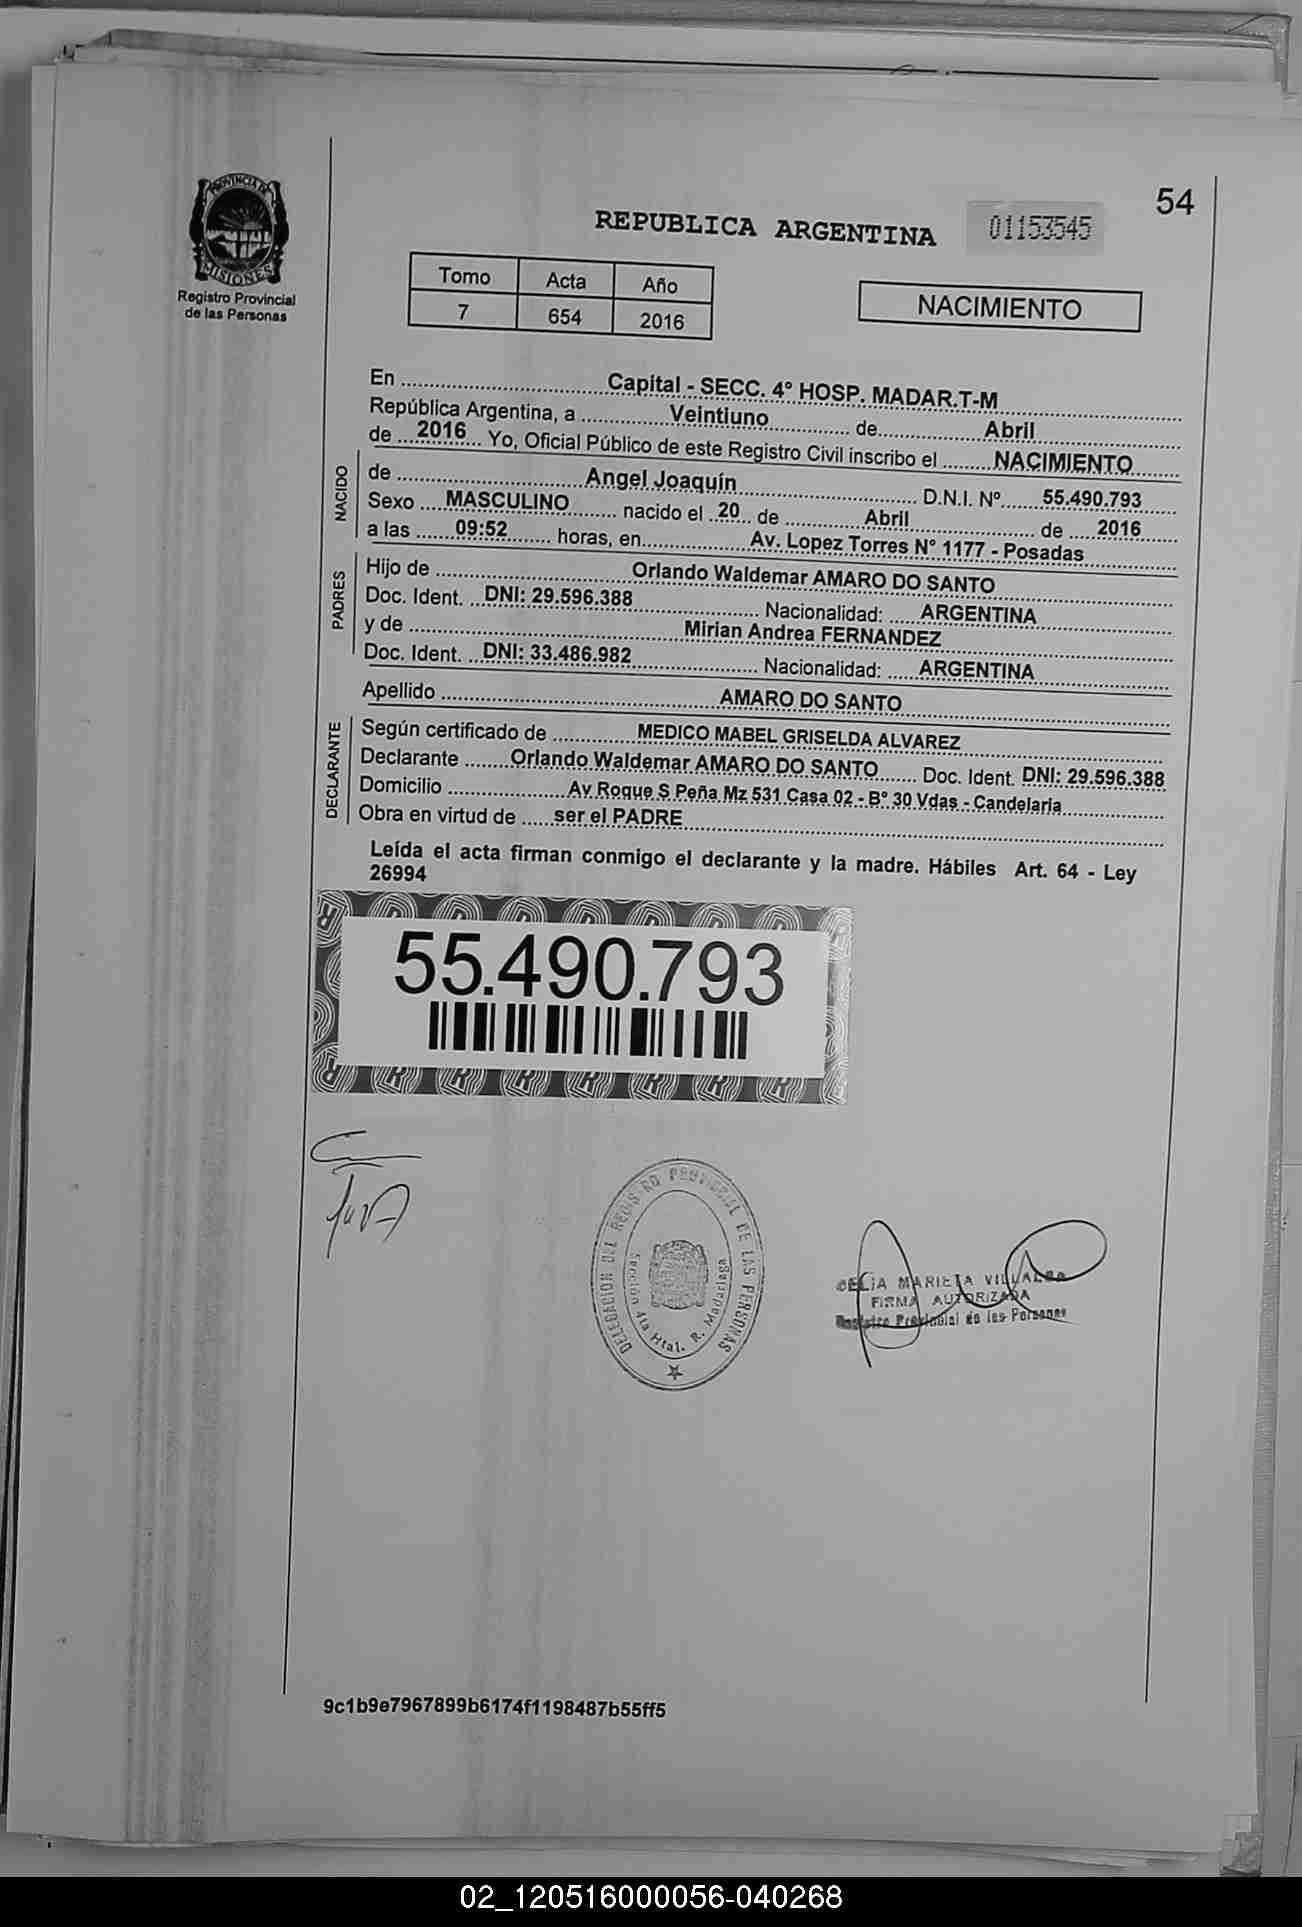 54
PROVINCIA DE
MISIONES
Registro Provincial
de las Personas
REPUBLICA ARGENTINA
01153545
Tomo Acta Año
7 654 2016
NACIMIENTO
En Capital - SECC. 4° HOSP. MADAR.T-M
República Argentina, a Veintiuno de Abril
de 2016 Yo, Oficial Público de este Registro Civil inscribo el NACIMIENTO
NACIDO
de Angel Joaquín D.N.I. Nº 55.490.793
Sexo MASCULINO nacido el 20 de Abril de 2016
a las 09:52 horas, en Av. Lopez Torres N° 1177 - Posadas
PADRES
Hijo de Orlando Waldemar AMARO DO SANTO
Doc. Ident. DNI: 29.596.388 Nacionalidad: ARGENTINA
y de Mirian Andrea FERNANDEZ
Doc. Ident. DNI: 33.486.982 Nacionalidad: ARGENTINA
Apellido AMARO DO SANTO
DECLARANTE
Según certificado de MEDICO MABEL GRISELDA ALVAREZ
Declarante Orlando Waldemar AMARO DO SANTO Doc. Ident. DNI: 29.596.388
Domicilio Av Roque S Peña Mz 531 Casa 02 - B° 30 Vdas - Candelaria
Obra en virtud de ser el PADRE
Leída el acta firman conmigo el declarante y la madre. Hábiles Art. 64 - Ley
26994
55.490.793
DELEGACION DEL REGISTRO PROVINCIAL DE LAS PERSONAS
Sección 4ta Htal. R. Madariaga
MARIETA VILLALBA
FIRMA AUTORIZADA
Registro Provincial de las Personas
9c1b9e7967899b6174f1198487b55ff5
02_120516000056-040268